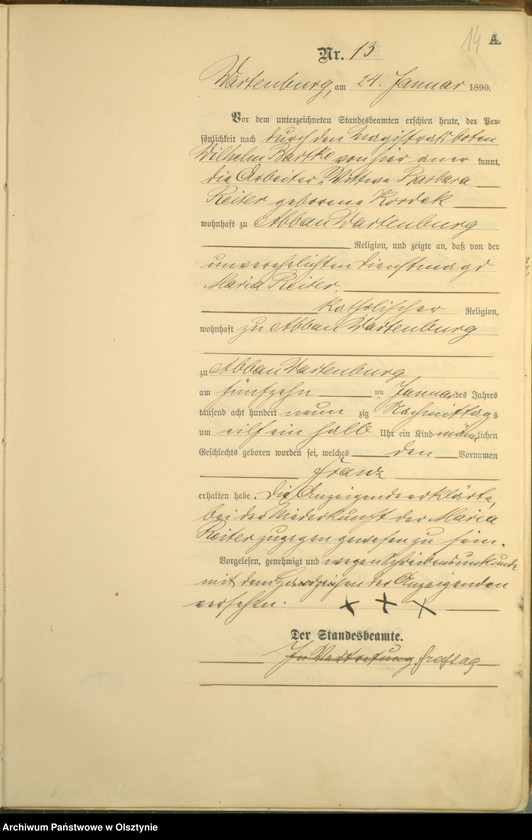 14 A.
Nr. 13
Wartenburg, am 24. Januar 1890.
Vor dem unterzeichneten Standesbeamten erschien heute, der Per-
sönlichkeit nach durch den Magistratsboten
Wilhelm Bartke von hier aner kannt,
die Arbeiter-Wittwe Barbara
Reiter geborene Kordek
wohnhaft zu Abbau Wartenburg
Religion, und zeigte an, daß von der
unverehelichten Dienstmagd
Maria Reiter,
katholischer Religion,
wohnhaft zu Abbau Wartenburg
zu Abbau Wartenburg
am fünfzehn ten Januar des Jahres
tausend acht hundert neun zig Nachmittags
um eilf ein halb Uhr ein Kind männlichen
Geschlechts geboren worden sei, welches den Vornamen
Franz
erhalten habe. Die Anzeigende erklärte,
bei der Niederkunft der Maria
Reiter zugegen gewesen zu sein.
Vorgelesen, genehmigt und wegen Schreibensunkunde
mit dem Handzeichen der Anzeigenden
versehen. + + +
Der Standesbeamte.
In Vertretung Freytag
Archiwum Państwowe w Olsztynie